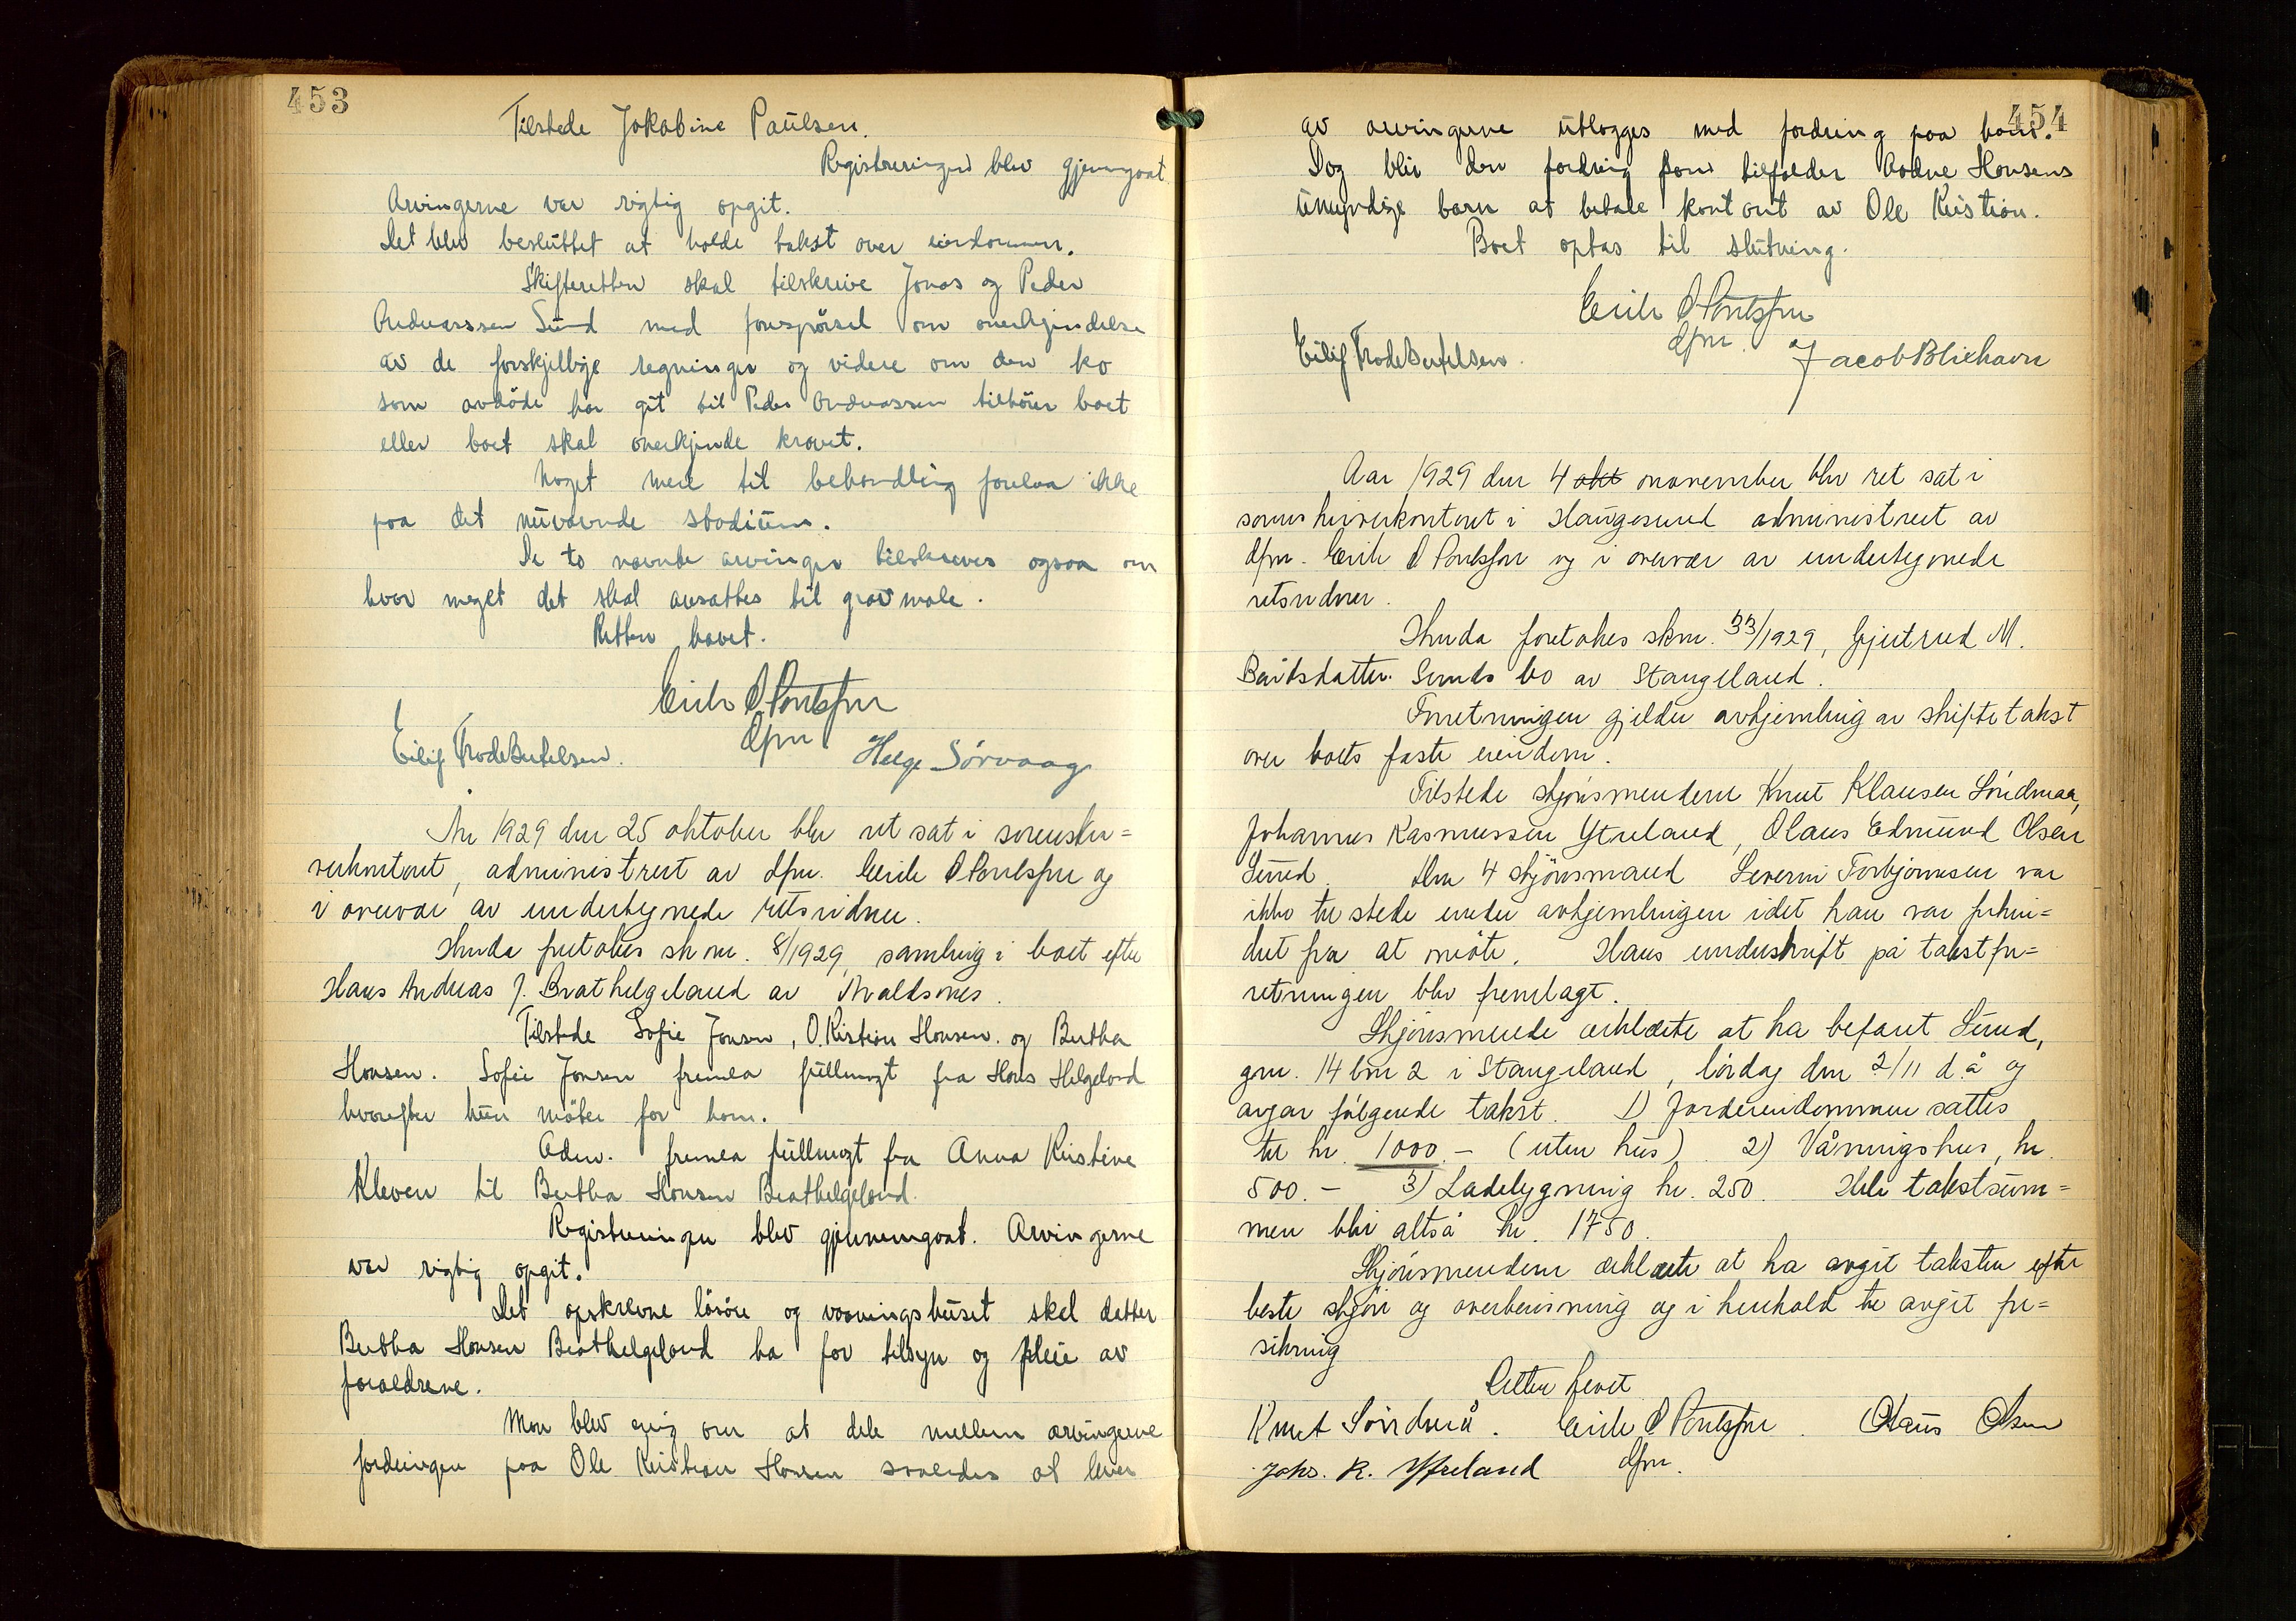 453
Tilstede Jakobine Paulsen.
Registreringen blev gjennemgaat
Arvingerne var rigtig opgit.
Det blev besluttet at holde takst over eiendommen.
Skifteretten skal tilskrive Jonas og Peder
Andreassen Sund med forespörsel om anerkjendelse
av de forskjellige regninger og videre om den ko
som avdöde har git til Peder Andreassen tilhörer boet
eller boet skal anerkjende kravet.
Noget mere til behandling forelaa ikke
paa det nuværende stadium.
De to nævnte arvinger tilskrives ogsaa om
hvor meget det skal avsættes til gravmæle.
Retten hævet.
Eirik
dfm
Eilif Frode Bertelsen.
Helge Sörvaag
Aar 1929 den 25 oktober blev ret sat i sorenskri=
verkontoret, administrert av dfm. Eirik og
i overvær av undertegnede retsvidner.
Herunder foretokes sk nr. 8/1929, samling i boet efter
Hans Andreas J. Brathelgeland av Avaldsnes.
Tilstede Sofie Jonsen, O. Kristian Hansen. og Bertha
Hansen. Sofie Jonsen fremla fullmagt fra Hans Helgeland
hvorefter hun möter for ham.
Adm. fremla fullmagt fra Anna Kristine
Kleven til Bertha Hansen Brathelgeland.
Registreringen blev gjennemgaat. Arvingerne
var rigtig opgit.
Det opskrevne lösöre og vaaningshuset skal datter
Bertha Hansen Brathelgeland ha for tilsyn og pleie av
forældrene.
Man blev enig om at dele mellem arvingerne
fordringen paa Ole Kristian Hansen saaledes at hver
454
av arvingerne utlægges med fordring paa ham.
Dog blir den fordring som tilfalder Aadne Hansens
umyndige barn at betale kontant av Ole Kristian.
Boet optas til slutning.
Eirik
dfm.
Eilif Frode Bertelsen.
Jacob Bliehavn
Aar 1929 den 4 okt november blev ret sat i
sorenskriverkontoret i Haugesund administrert av
dfm. Eirik og i overvær av undertegnede
retsvidner.
Herunder foretokes sknr. 33/1929, Gjertrud M.
Baardsdatter Sunds bo av Stangeland.
Forretningen gjelder avhjemling av skiftetakst
over boets faste eiendom.
Tilstede skjönsmendene Knut Klausen Söndmaa,
Johannes Rasmussen Ytreland, Olaus Edmund Olsen
Sund. Den 4 skjönsmand Severin Torbjörnsen var
ikke tilstede under avhjemlingen idet han var forhin=
dret fra at möte. Hans underskrift på takstfor=
retningen blev fremlagt.
Skjönsmendene erklærte at ha befart Sund,
gnr. 14 bnr 2 i Stangeland, lördag den 2/11 d.å og
avgav fölgende takst. 1) Jordeiendommen sattes
til kr. 1000.- (uten hus). 2) Våningshus, kr.
500.- 3) Ladebygning kr. 250. Hele takstsum=
men blir altså kr. 1750.
Skjönsmendene erklærte at ha avgit taksten efter
beste skjön og overbevisning og i henhold til avgit for=
sikring
Retten hevet
Knut Söndmå. Eirik Olaus Olsen
dfm.
Johs. R. Ytreland